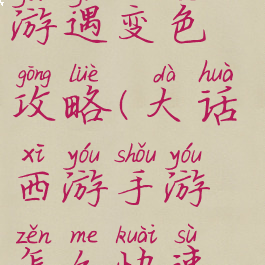 游遇变色
gōng lüè dà huà
攻略(大话
xī yóu shǒu yóu
西游手游
zěn me kuài sù
怎么快速